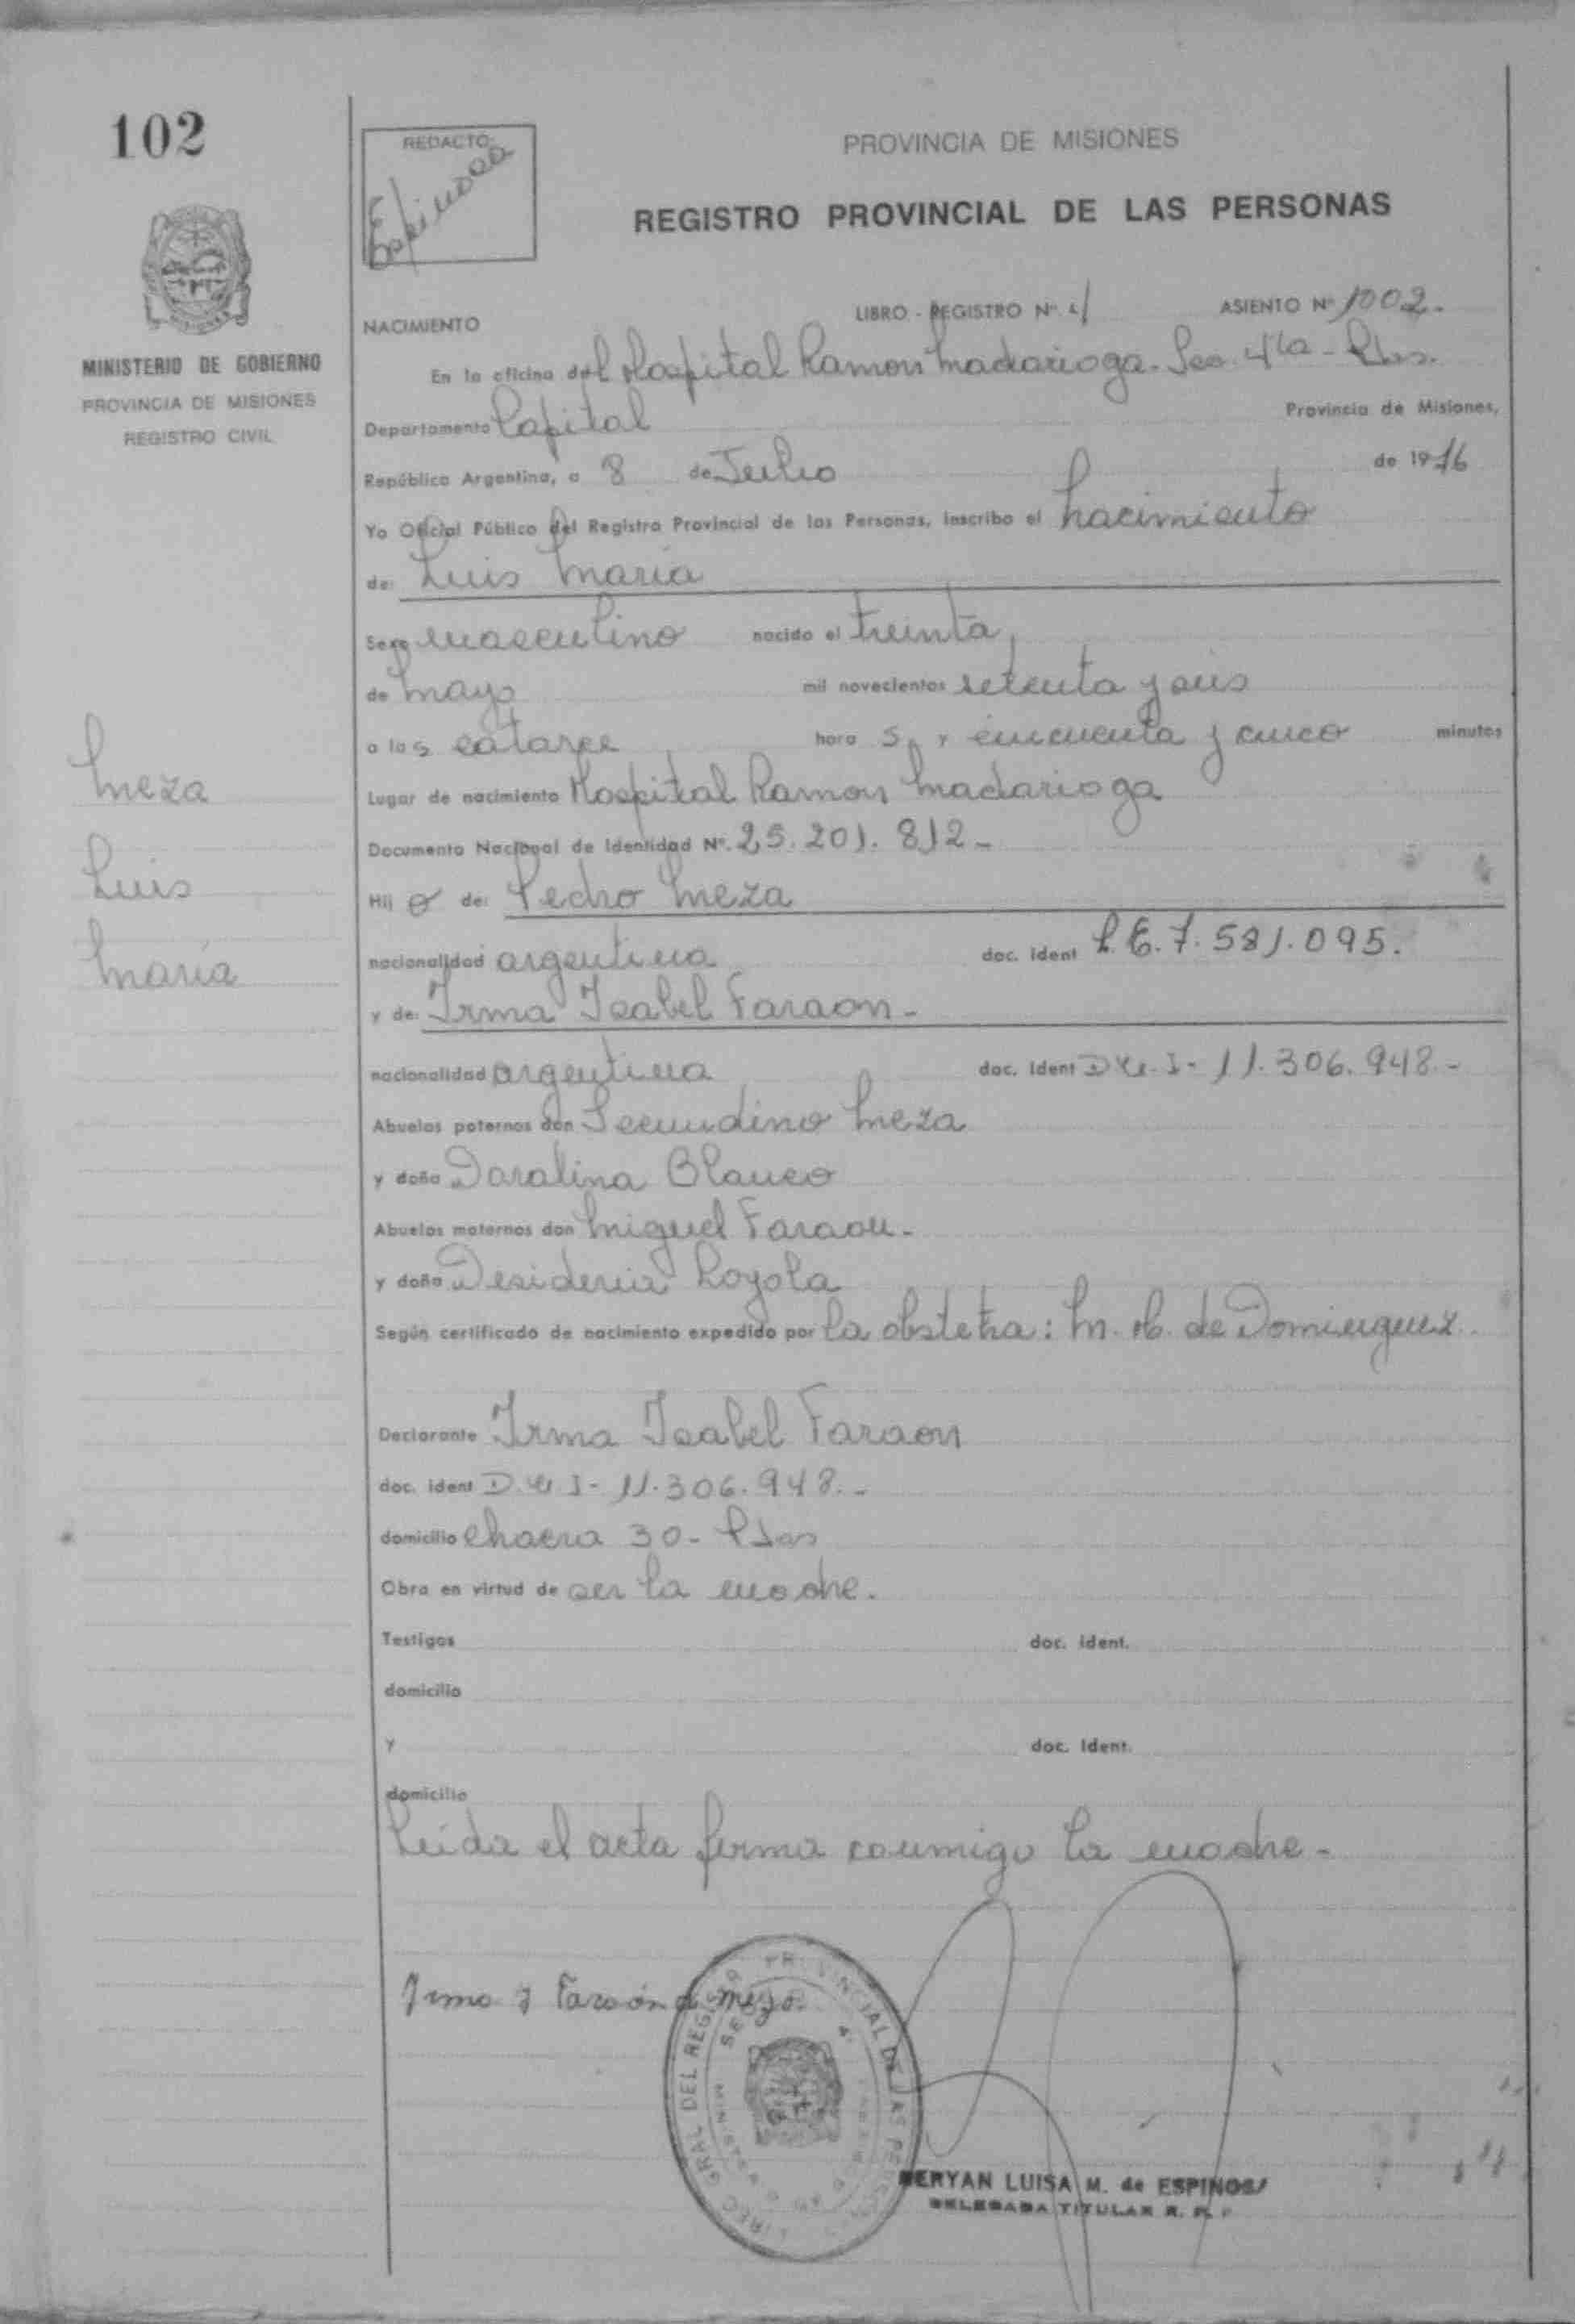 102
REDACTO
Espinosa
PROVINCIA DE MISIONES
REGISTRO PROVINCIAL DE LAS PERSONAS
MINISTERIO DE GOBIERNO
PROVINCIA DE MISIONES
REGISTRO CIVIL
LIBRO - REGISTRO Nº 4 ASIENTO Nº 1002.-
NACIMIENTO
En la oficina del Hospital Ramon Madariaga - Sec. 4ta - Pdas.
Departamento Capital Provincia de Misiones,
República Argentina, a 8 de Julio de 1976
Yo Oficial Público del Registro Provincial de las Personas, inscribo el nacimiento
de: Luis María
Sexo masculino nacido el treinta
de mayo mil novecientos setenta y seis
a las catorce hora s y cincuenta y cinco minutos
Lugar de nacimiento Hospital Ramon Madariaga
Documento Nacional de Identidad Nº. 25.201.812-
Hij o de: Pedro Meza
nacionalidad argentina doc. ident L.E. 7.581.095.
y de: Irma Isabel Faraon-
nacionalidad argentina doc. ident D.N.I- 11.306.948.-
Abuelos paternos don Secundino Meza
y doña Doralina Blanco
Abuelos maternos don Miguel Faraon-
y doña Desideria Loyola
Según certificado de nacimiento expedido por la obstetra: M. H. de Dominguez
Declarante Irma Isabel Faraon
doc. ident D.N.I- 11.306.948.-
domicilio Chacra 30- Pdas
Obra en virtud de ser la madre.
Testigos doc. ident.
domicilio
y doc. ident.
domicilio
Leída el acta firma conmigo la madre-
Meza
Luis
María
Irma I Faraón de Meza.
DIREC. GRAL DEL REGISTRO PROVINCIAL DE LAS PERSONAS
MERYAN LUISA M. de ESPINOSA
DELEGADA TITULAR R. P. P